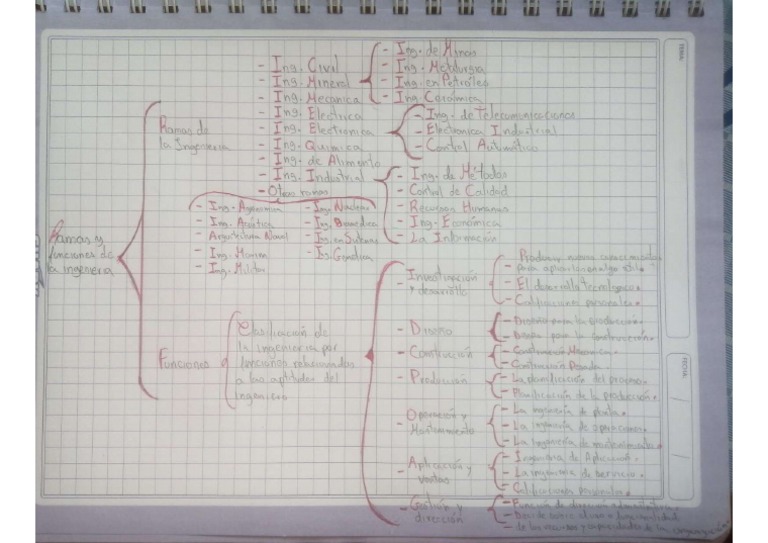 Ramas y
funciones de
la ingeniera
Ramas de
la Ingenieria
- Ing. Civil
- Ing. Mineral
- Ing. Mecanica
- Ing. Electrica
- Ing. Electronica
- Ing. Quimica
- Ing. de Alimento
- Ing. Industrial
- Otras ramas
- Ing. de Minas
- Ing. Metalurgia
- Ing. en Petróleo
- Ing. Cerámica
- Ing. de Telecomunicaciones
- Electronica Industrial
- Control Automático
- Ing. de Métodos
- Control de Calidad
- Recursos Humanos
- Ing. Económica
- La Información
- Ing. Agronomia
- Ing. Acústica
- Arquitectura Naval
- Ing. Marina
- Ing. Militar
- Ing. Nuclear
- Ing. Biomedica
- Ing. en Sistemas
- Ing. Genética
Funciones
Clasificación de
la ingenieria por
funciones relacionadas
a las aptitudes del
ingeniero
- Investigación
y desarrollo
- Producir nuevos conocimientos
para
- El desarrollo tecnologico.
- Calificaciones personales.
- Diseño
- Diseño para la producción.
- Diseño para la construcción.
- Construcción
- Construcción Mecanica.
- Construcción Pesada.
- Producción
- La planificación del proceso.
- Planificación de la producción.
- Operación y
Mantenimiento
- La ingeniería de planta.
- La ingeniería de operaciones.
- La ingeniería de mantenimiento.
- Aplicación y
ventas
- Ingenieria de Aplicación.
- La ingenieria de servicio.
- Calificaciones personales.
- Gestión y
dirección
- Función de dirección administrativa
- de los recursos y capacidades de la organización
TEMA:
FECHA: